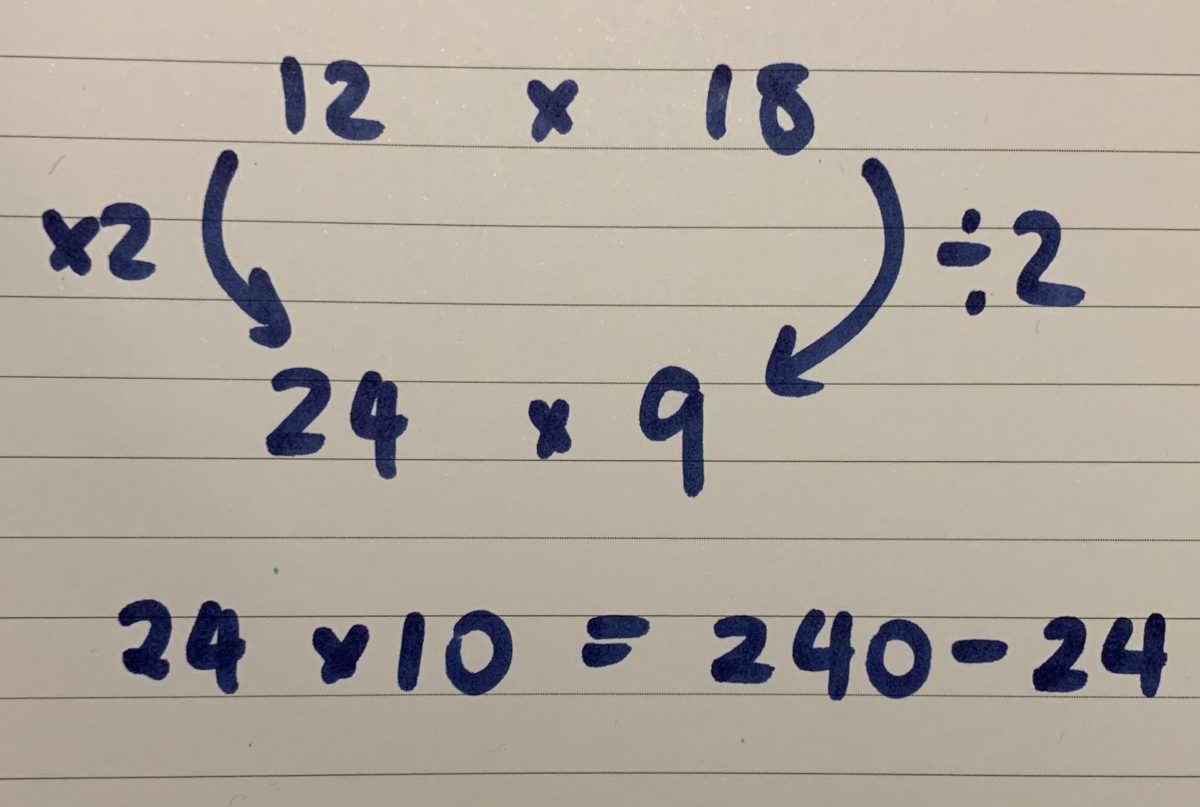 12 × 18
×2 ÷2
24 × 9
24 × 10 = 240 - 24